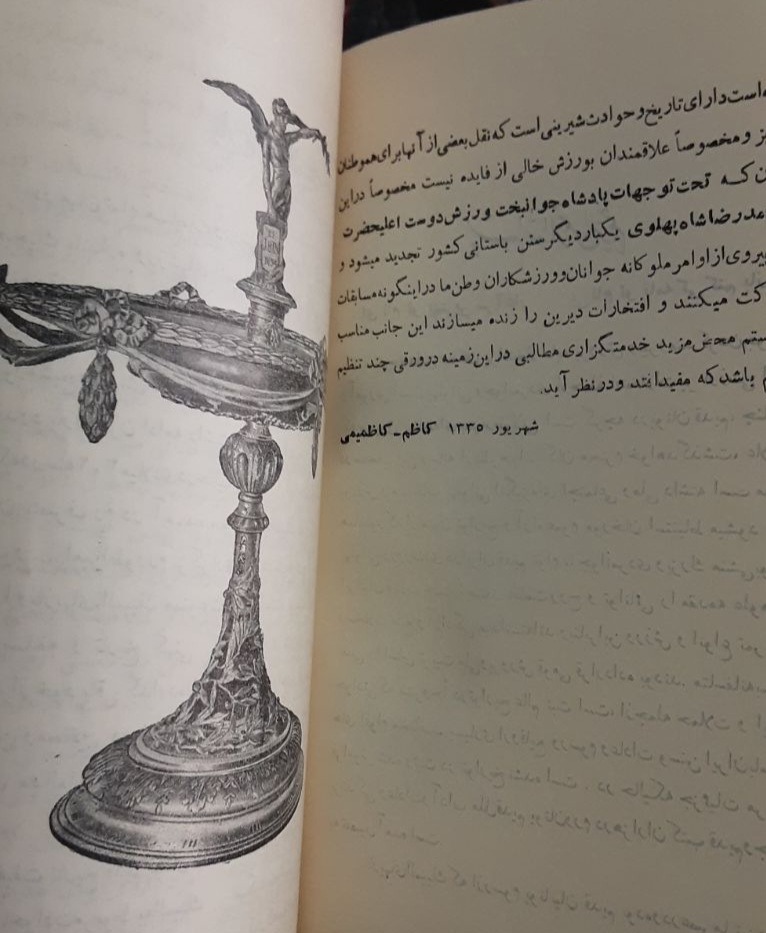 است دارای تاریخ و حوادث شیرینی است که نقل بعضی از آنها برای هموطنان
و مخصوصاً علاقمندان بورزش خالی از فایده نیست مخصوصاً در این
که تحت توجهات پادشاه جوانبخت ورزش دوست اعلیحضرت
رضا شاه پهلوی یکبار دیگر سنن باستانی کشور تجدید میشود و
پیروی از اوامر ملوکانه جوانان و ورزشکاران وطن ما در اینگونه مسابقات
میکنند و افتخارات دیرین را زنده میسازند این جانب مناسب
محض مزید خدمتگزاری مطالبی در این زمینه در ورقی چند تنظیم
باشد که مفید افتد و در نظر آید.
شهریور ۱۳۳۵ کاظم - کاظمیمی